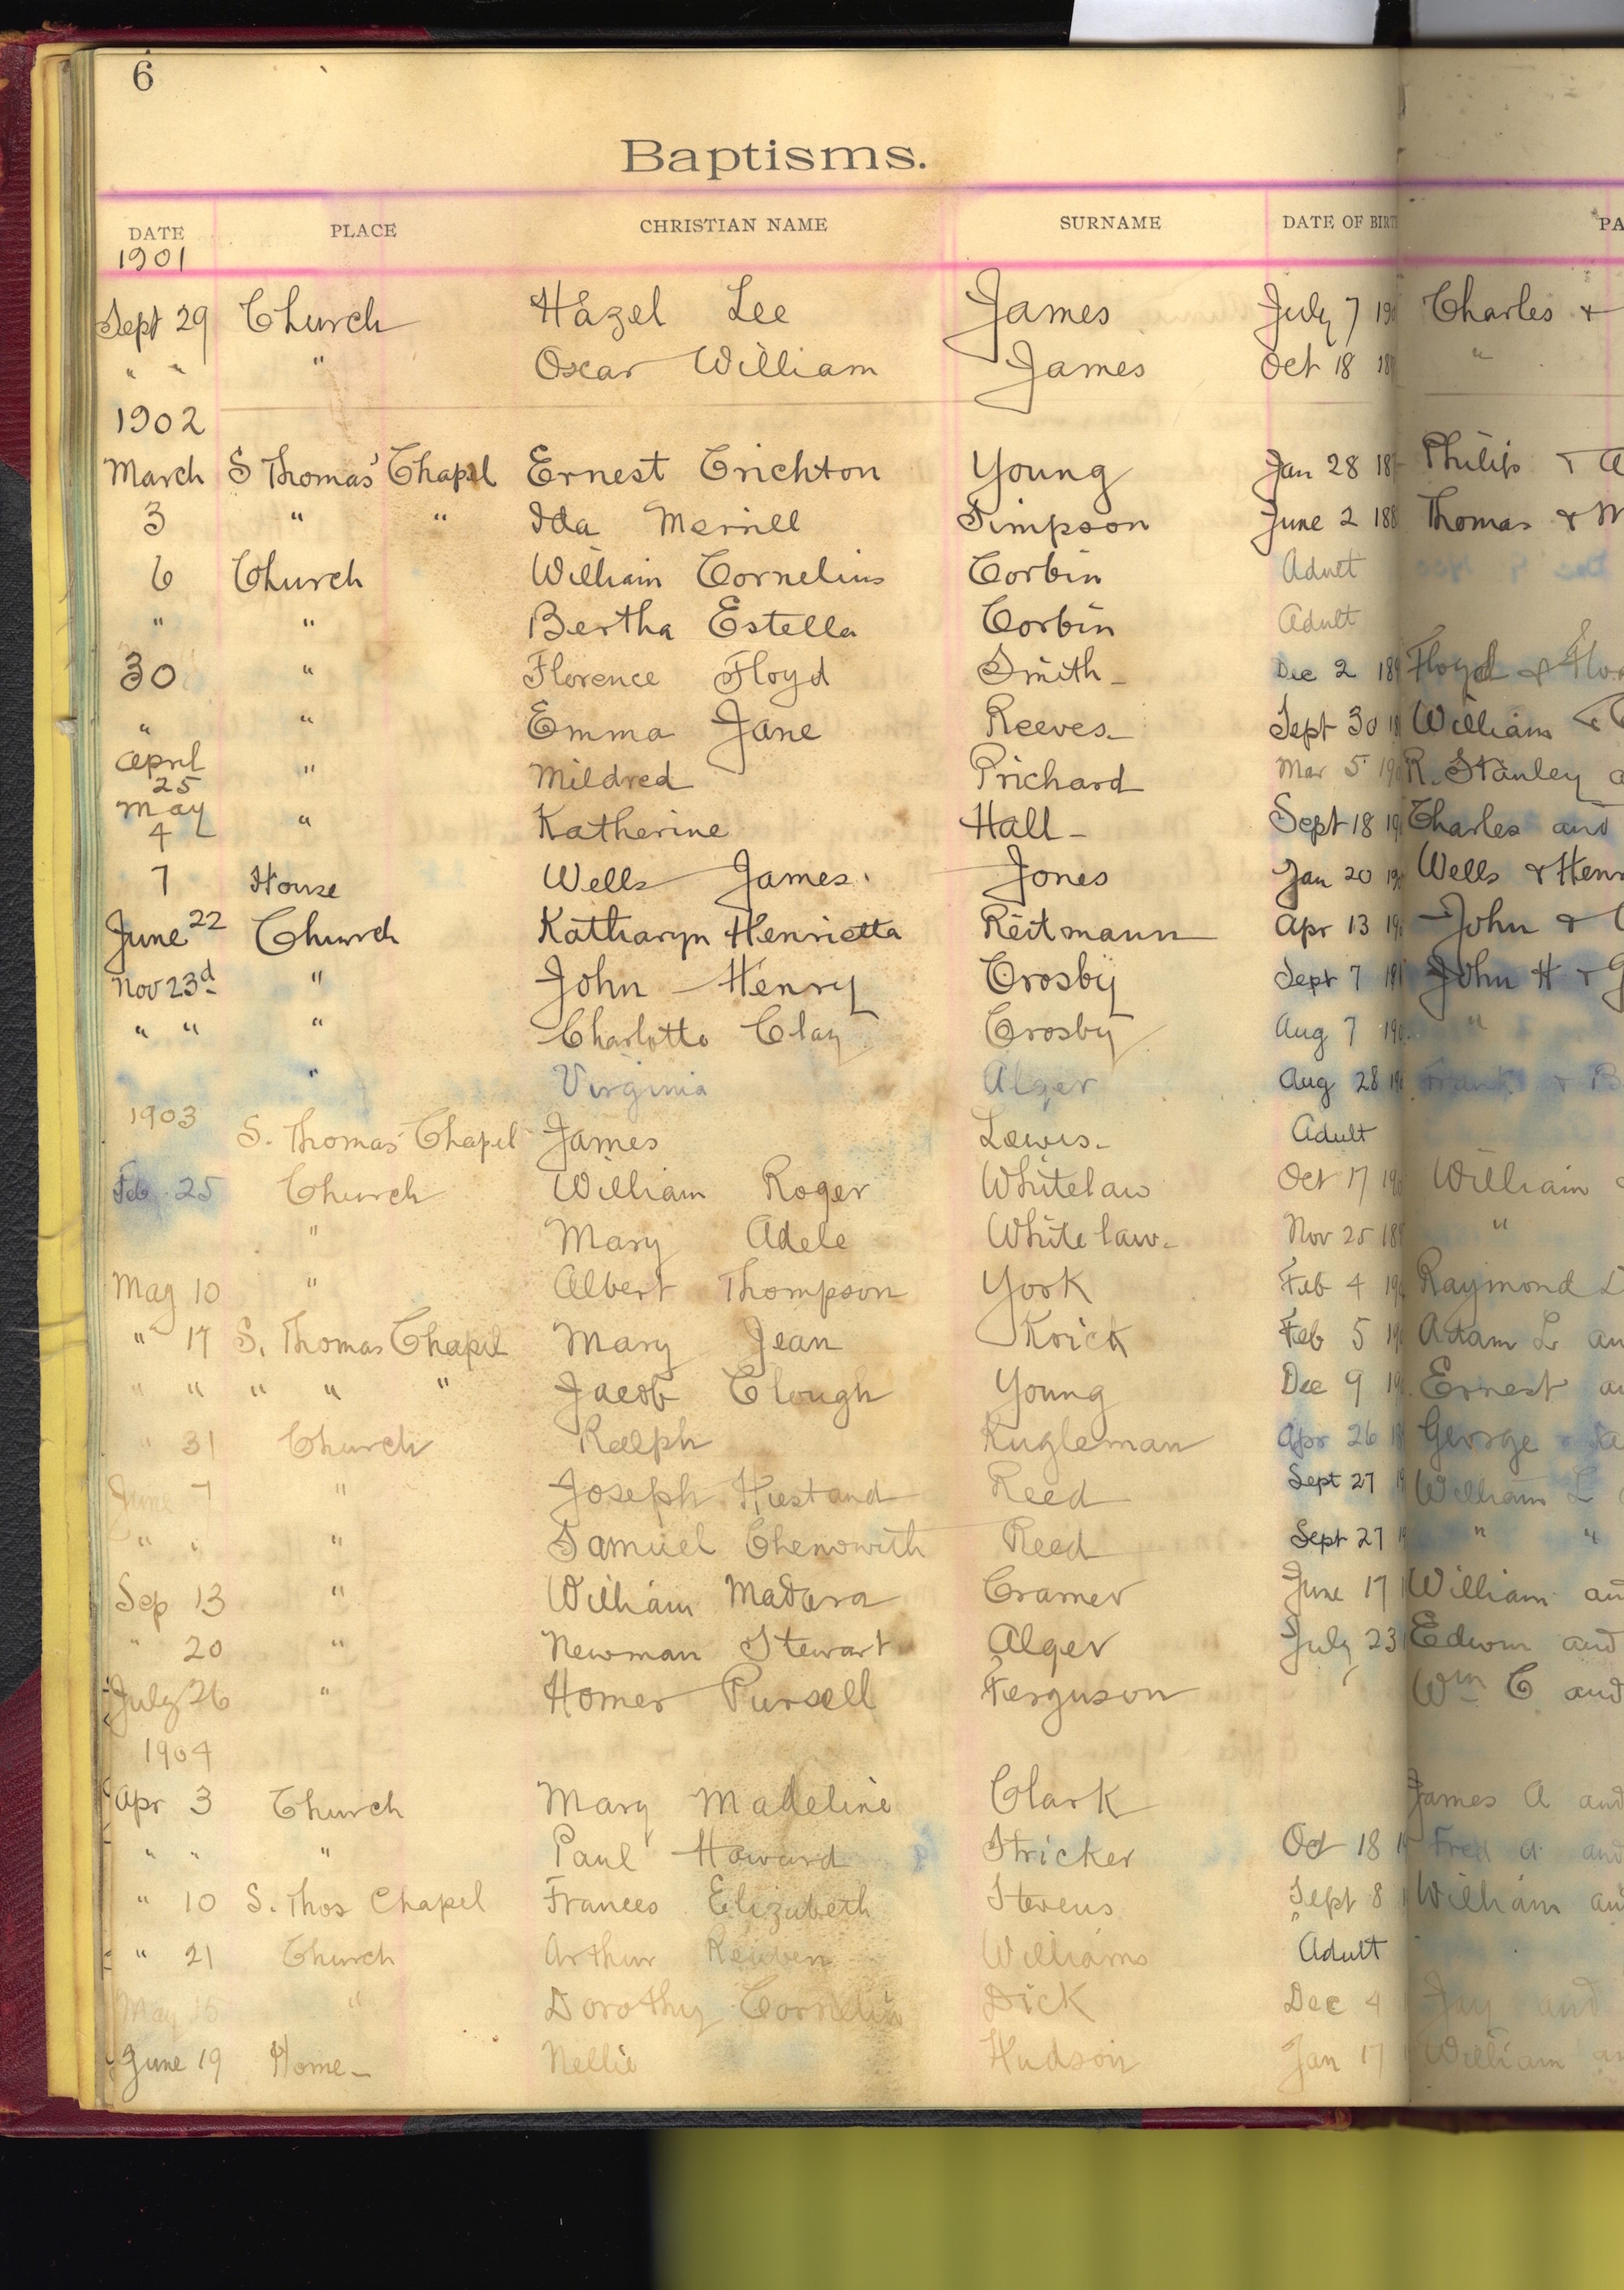 6
Baptisms.
DATE PLACE CHRISTIAN NAME SURNAME DATE OF BIRT PA
1901
Sept 29 Church Hazel Lee James July 7 190 Charles &
" " " Oscar William James Oct 18 18 "
1902
March S Thomas' Chapel Ernest Crichton Young Jan 28 18 Philip & A
3 " " Ida Merrill Simpson June 2 188 Thomas & M
6 Church William Cornelius Corbin Adult
" " Bertha Estella Corbin Adult
30 " Florence Floyd Smith - Dec 2 189 Floyd & Flo
" " Emma Jane Reeves - Sept 30 18 William &
April 25 " Mildred Prichard Mar 5 190 R. Stanley a
May 4 " Katherine Hall - Sept 18 19 Charles and
7 House Wells James Jones Jan 20 19 Wells & Henr
June 22 Church Katharyn Henrietta Reitmann Apr 13 19 John &
Nov 23d " John Henry Crosby Sept 7 John H & G
" " " Charlotte Clay Crosby Aug 7 190 "
" Virginia Alger Aug 28 19 Frank & B
1903 S. Thomas' Chapel James Lewis - Adult
Feb 25 Church William Roger Whitelaw Oct 17 19 William
" Mary Adele Whitelaw - Nov 25 18 "
May 10 " Albert Thompson York Feb 4 19 Raymond
" 17 S. Thomas Chapel Mary Jean Krick Feb 5 19 Adam L an
" " " " " Jacob Clough Young Dec 9 19 Ernest an
" 31 Church Ralph Kugleman Apr 26 18 George &
June 7 " Joseph Hiestand Reed Sept 27 William L
" " " Samuel Chenowith Reed Sept 27 " "
Sep 13 " William Madara Cramer June 17 William an
" 20 " Newman Stewart Alger July 23 Edwin and
July 26 " Homer Pursell Ferguson Wm C and
1904
Apr 3 Church Mary Madeline Clark James A and
" " " Paul Howard Stricker Oct 18 Fred A and
" 10 S. Thos Chapel Frances Elizabeth Stevens Sept 8 William an
" 21 Church Arthur Reuben Williams Adult
May 15 " Dorothy Cornelia Dick Dec 4 Jay and
June 19 Home - Nellie Hudson Jan 17 William an